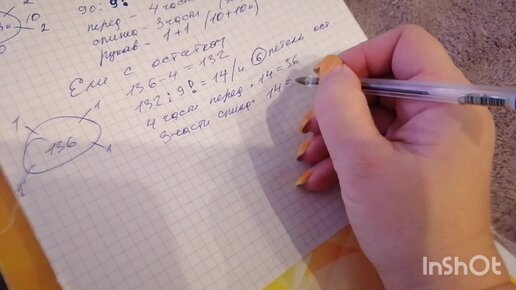 10
2
90 : 9!
перед - 4 части
спинка - 3 части
рукав - 1+1 (10+10п)
Если с остатком
136-4 = 132
132 : 9! = 14 /и 6 петель ост.
4 части перед · 14 = 56
3 части спина · 14 =
1
1
136
1
1
InShOt